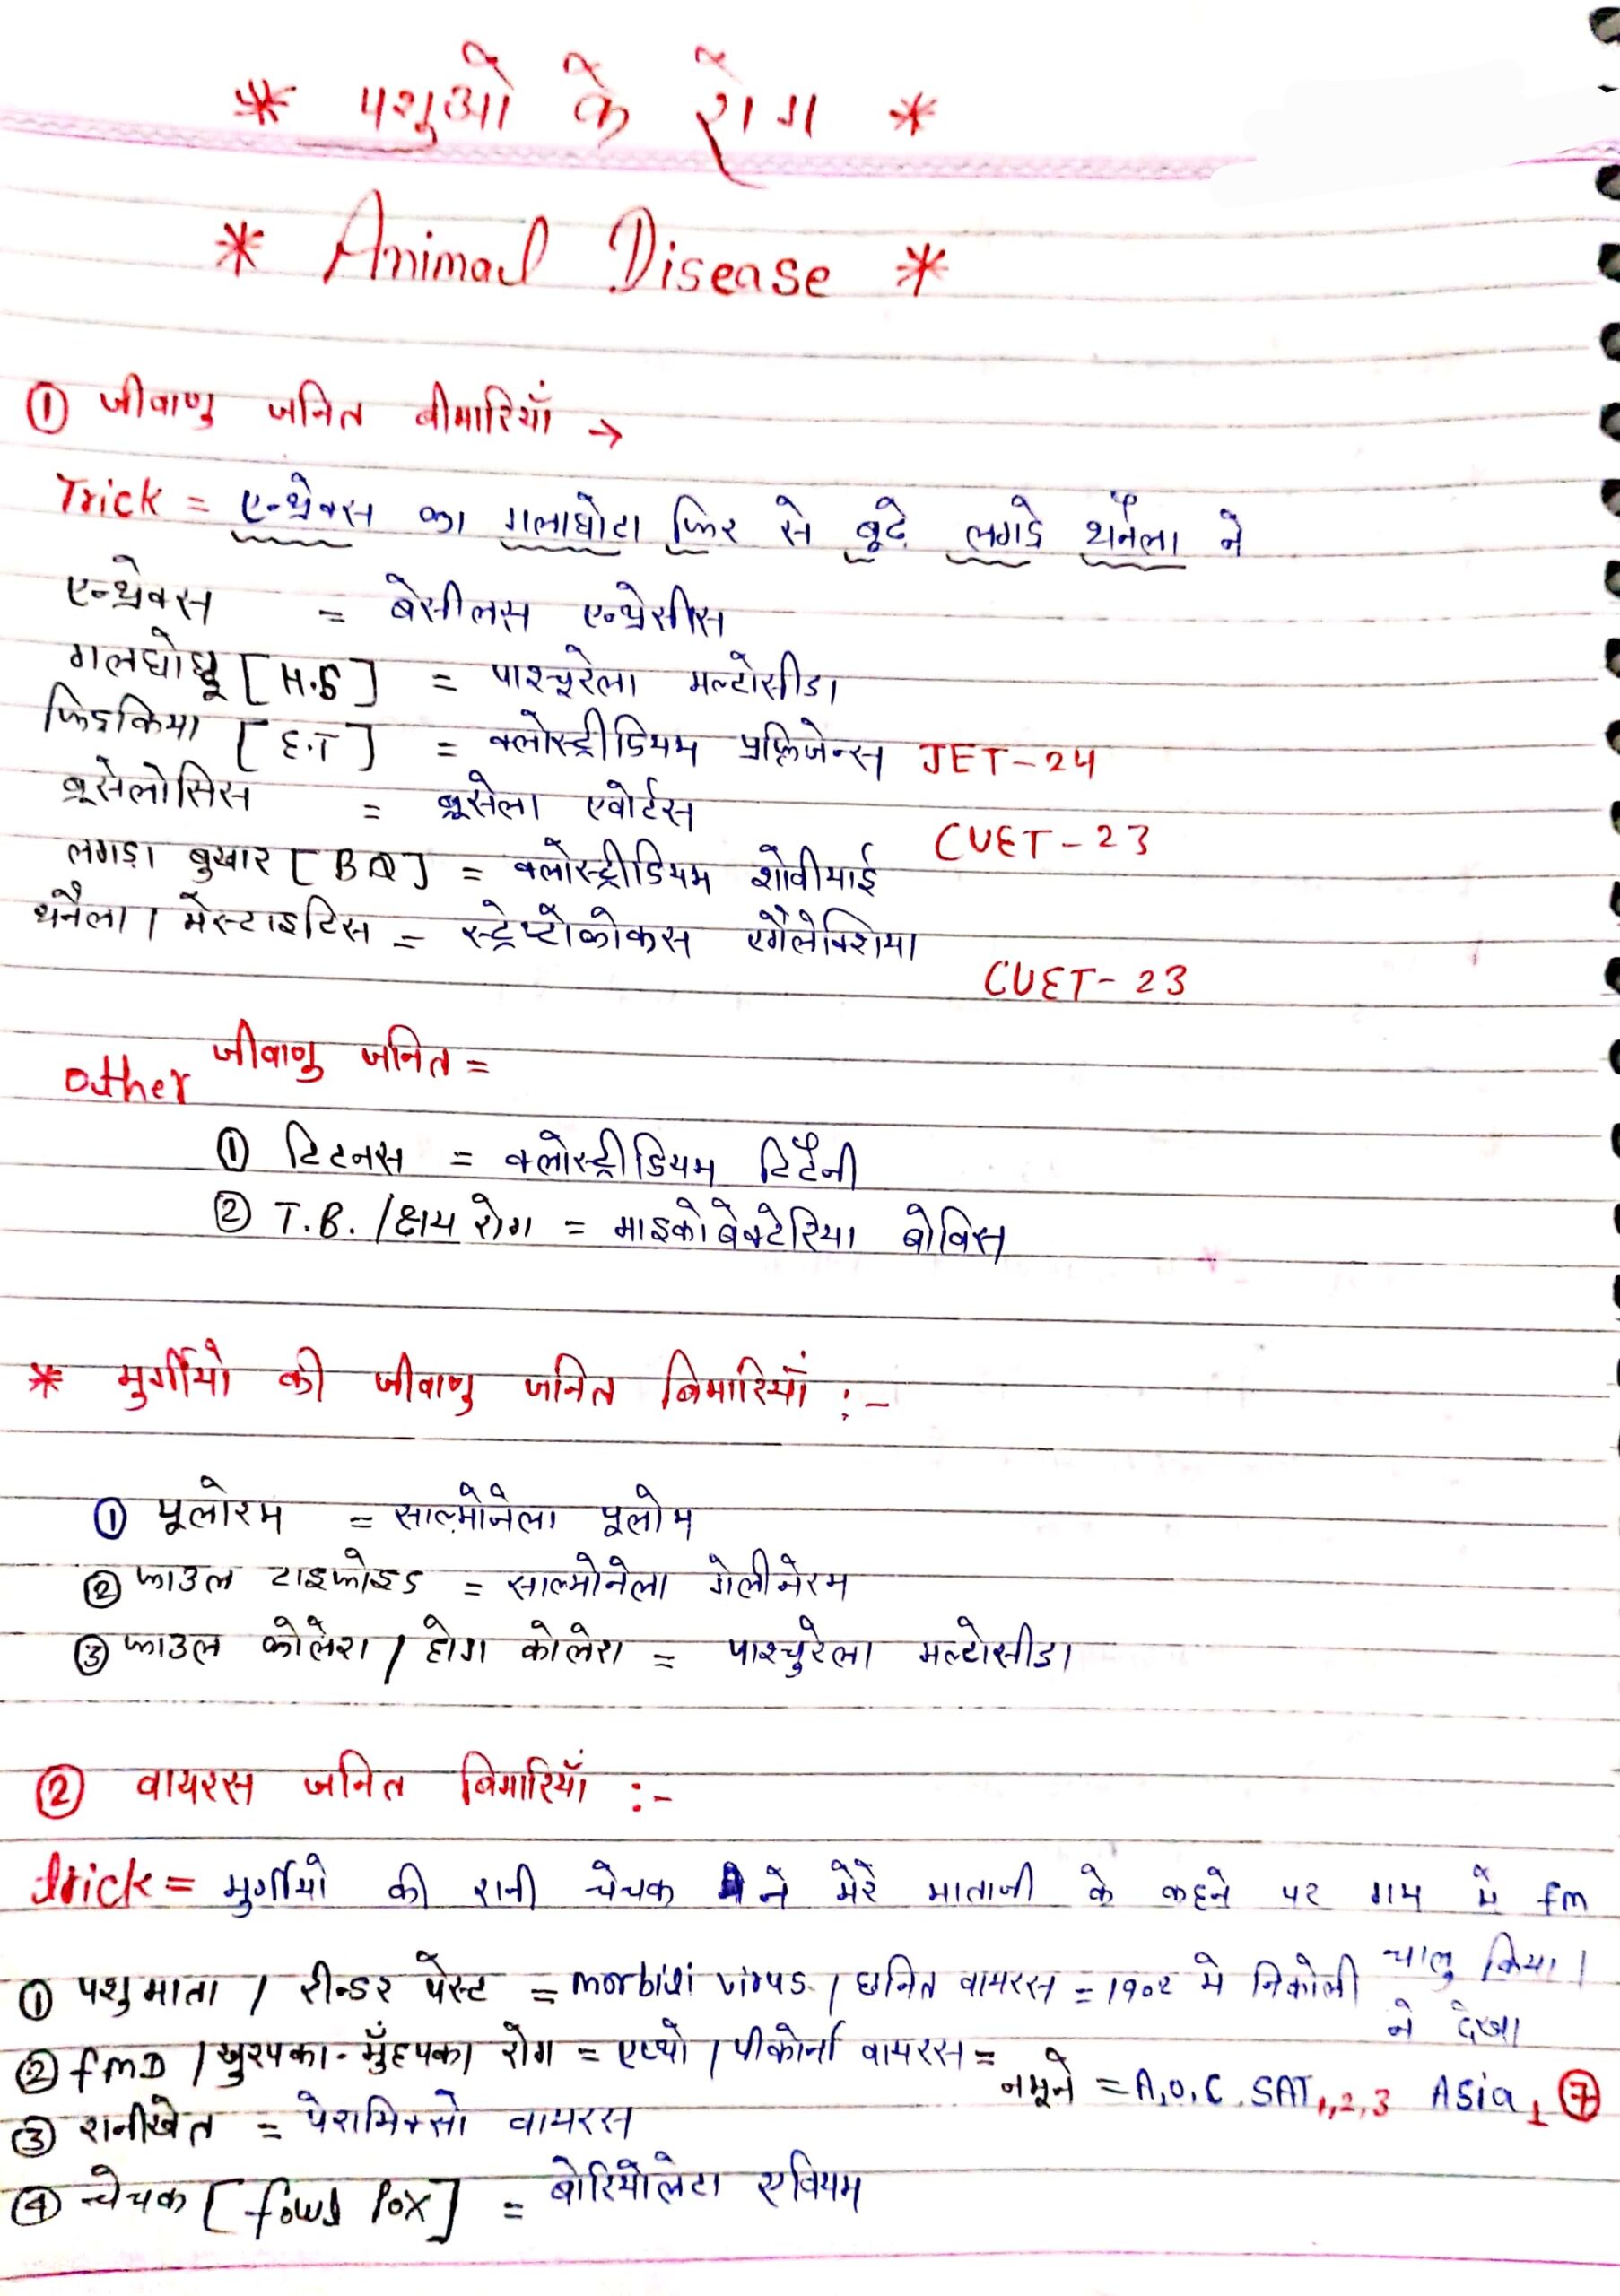 * पशुओ के रोग *
* Animal Disease *
① जीवाणु जनित बीमारियाँ →
Trick = एन्थ्रेक्स का गलाघोटा फिर से बूढे लगडे थनैला ने
एन्थ्रेक्स = बेसीलस एन्थ्रेसीस
गलघोटू [H.S] = पाश्चूरेला मल्टोसीडा
फिडकिया [E.T] = क्लोस्ट्रीडियम प्रफ्रिजेन्स JET-24
ब्रूसेलोसिस = ब्रूसेला एबोर्टस
लगड़ा बुखार [BQ] = क्लोस्ट्रीडियम शोवीयाई CUET-23
थनैला / मेस्टाइटिस = स्ट्रेप्टोकोकस एगैलेक्शिया
CUET-23
Other जीवाणु जनित =
① टिटनस = क्लोस्ट्रीडियम टिटैनी
② T.B. / क्षय रोग = माइकोबेक्टेरिया बोविस
* मुर्गीयो की जीवाणु जनित बिमारियाँ :-
① पूलोरम = साल्मोनेला पूलोम
② फाउल टाइफोइड = साल्मोनेला गेलीनेरम
③ फाउल कोलेरा / होग कोलेरा = पाश्चुरेला मल्टोसीडा
② वायरस जनित बिमारियाँ :-
trick = मुर्गीयो की रानी चेचक ने मेरे माताजी के कहने पर गाय मे fm
चालु किया।
① पशुमाता / रीन्डर पेस्ट = morbidi virus / छनित वायरस = 1902 मे निकोली
ने देखा
② fmD / खुरपका-मुँहपका रोग = एप्थो / पीकोर्ना वायरस =
नमूने = A,O,C, SAT1,2,3 Asia1 ⑦
③ रानीखेत = पेरामिक्सो वायरस
④ चेचक [fowl Pox] = बोरियोलेटा एवियम